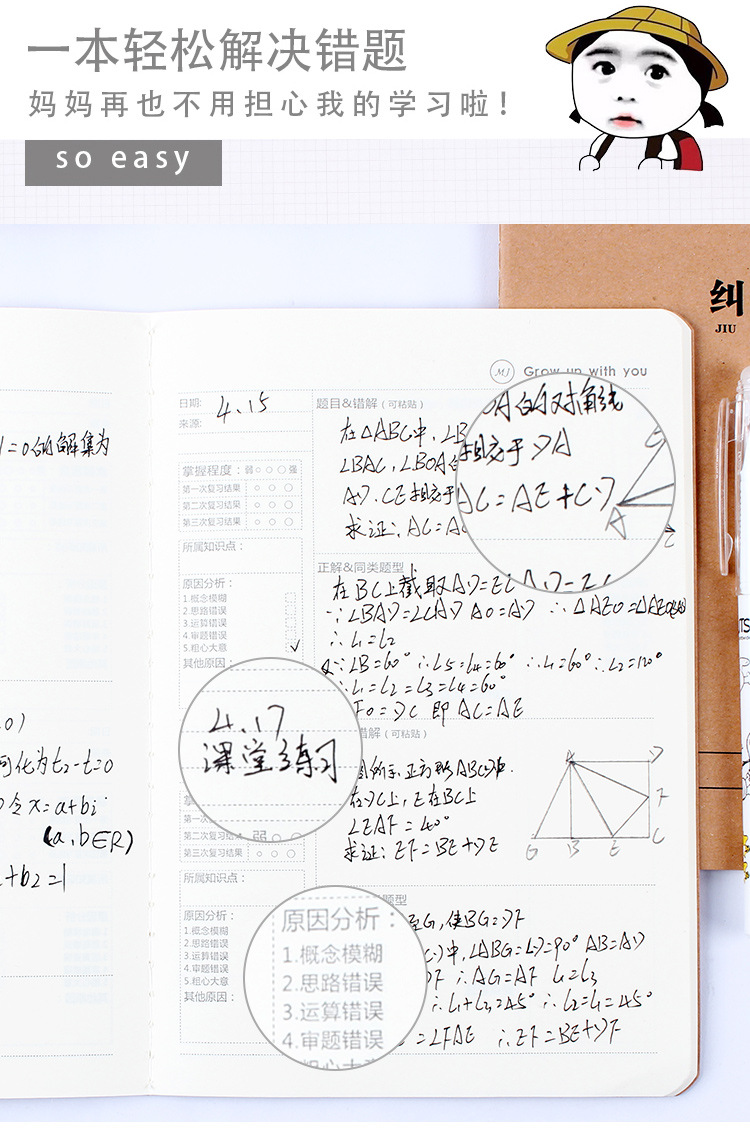 一本轻松解决错题
妈妈再也不用担心我的学习啦！
so easy
纠
JIU
MJ Grow up with you
日期: 4.15
来源:
掌握程度：弱○○○强
第一次复习结果 ○ ○ ○
第二次复习结果 ○ ○ ○
第三次复习结果 ○ ○ ○
所属知识点：
原因分析：
1.概念模糊
2.思路错误
3.运算错误
4.审题错误
5.粗心大意 ✓
其他原因：
题目&错解（可粘贴）
在△ABC中，∠B
∠BAC，∠BOA
AD、CE相交于
求证：AC=A
OA的对角线
相交于DA
AC=AE+CD
A
正解&同类题型
在BC上截取AD=EC
∵∠BAD=∠CAD AO=AD ∴△AEO=△AEO
∴∠1=∠2
又∵∠B=60° ∴∠5=∠4=60° ∴∠1=60° ∴∠2=120°
∴∠1=∠2=∠3=∠4=60°
FO=DC 即AC=AE
4.17
课堂练习
第二次复习结果 弱○ ○
第三次复习结果 ○ ○ ○
所属知识点：
原因分析：
1.概念模糊
2.思路错误
3.运算错误
4.审题错误
5.粗心大意
其他原因：
原因分析：
1.概念模糊
2.思路错误
3.运算错误
4.审题错误
错解（可粘贴）
图所示，正方形ABCD中.
在DC上，E在BC上
∠EAF=40°
求证：EF=BE+DE
A D
F
G B E C
题型
至G，使BG=DF
中，∠ABG=∠D=90° AB=AD
DF ∴AG=AF ∠1=∠3
∴∠1+∠3=45° ∴∠2=∠1=45°
=∠FAE ∴EF=BE+DF
1=0的解集为
可化为t2-t=0
令x=a+bi
(a,b∈R)
+b2=1